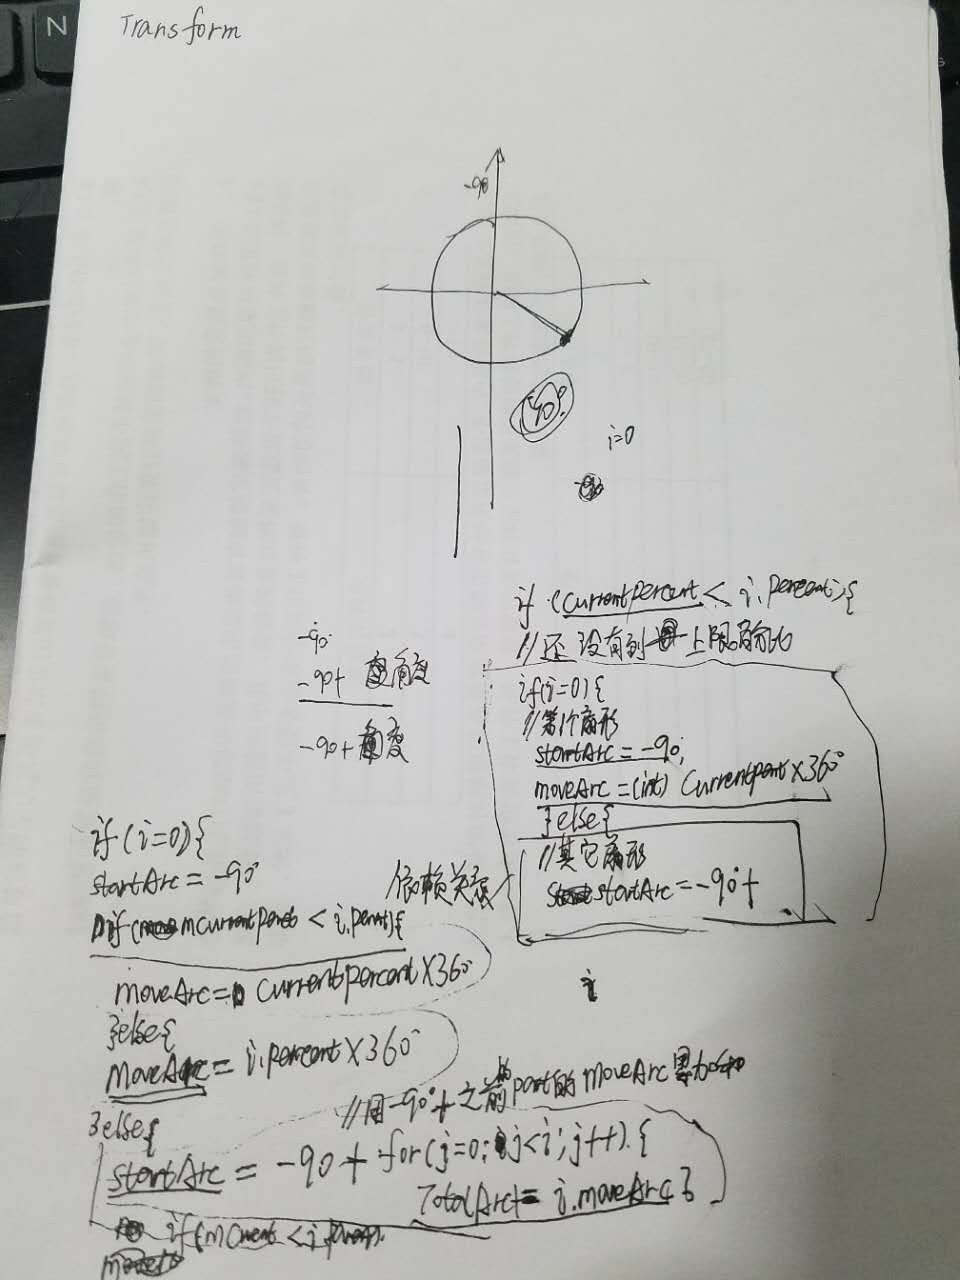 N
Transform
-90
90°
i=0
if (currentpercent < i.percent){
//还没有到上限百分比
-90°
-90+ 角度
-90+角度
if(i=0){
//第1个扇形
startArc = -90;
moveArc =(int) Currentpercent×360°
}else{
//其它扇形
startArc = -90°+
依赖关系
if(i=0){
startArc = -90°
if( mcurrentpercent < i.percent){
moveArc= currentpercent×360°
}else{
moveArc = i.percent×360°
i
//用-90°+之前的part的moveArc累加和
}else{
startArc = -90+ for(j=0; j<i; j++).{
TotalArc+= i.moveArc }
if(mCurrent < i.percent).